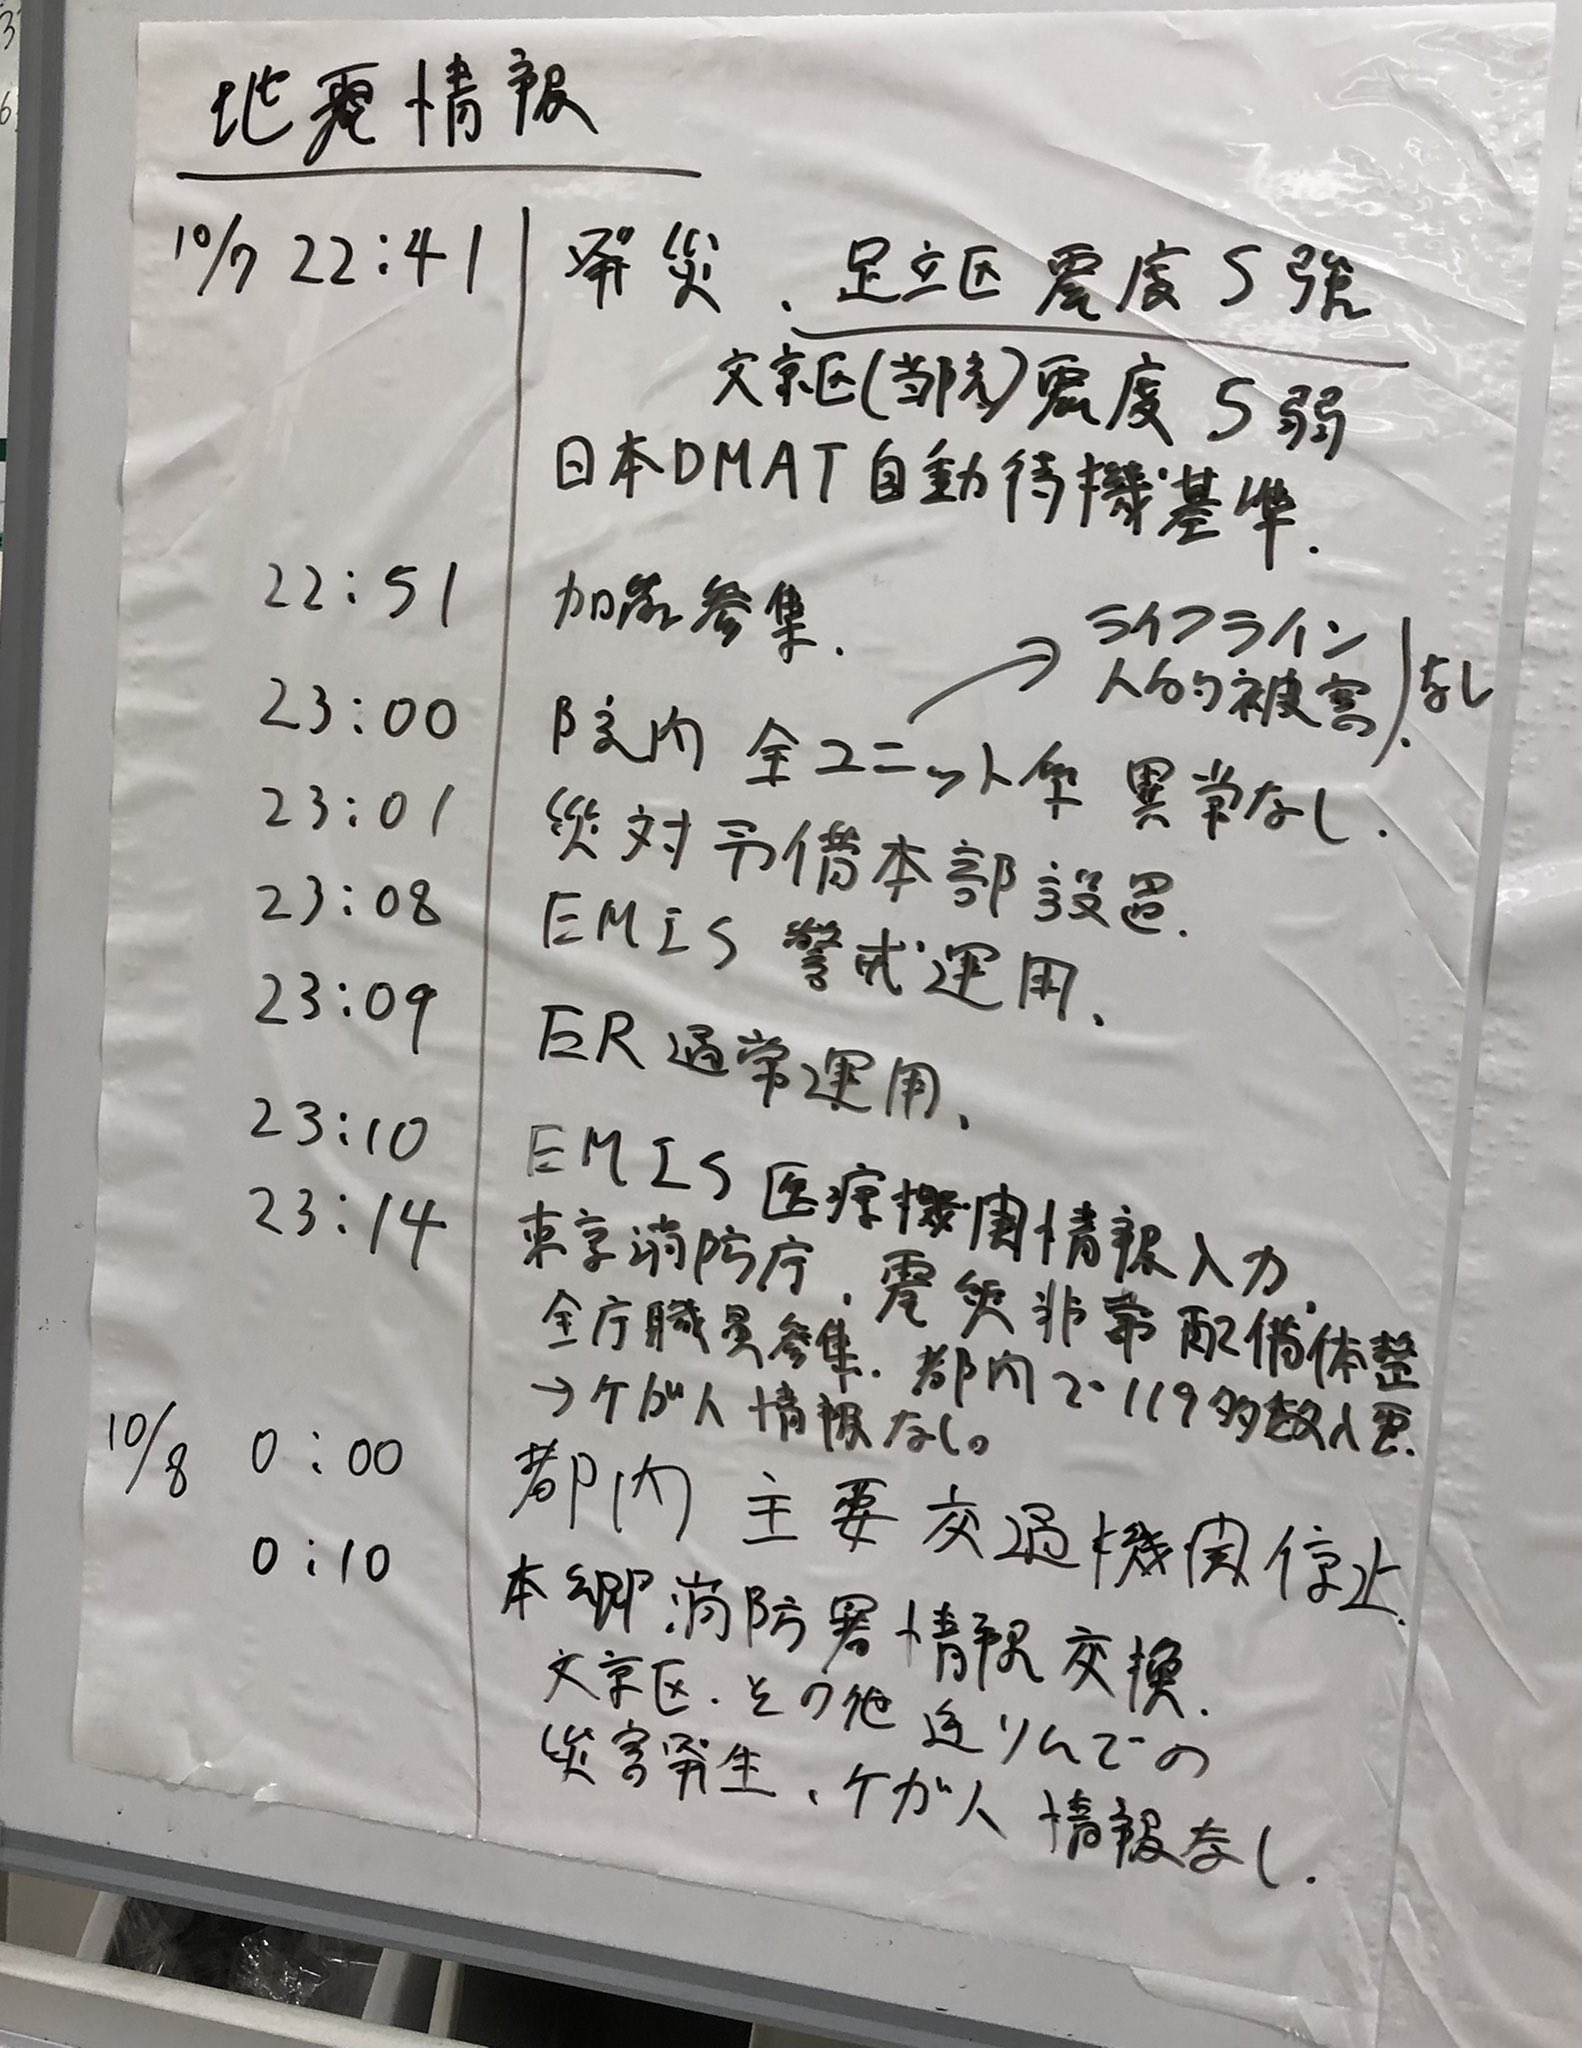 地震情報
10/7 22:41 発災、足立区 震度5強
文京区(当院)震度5弱
日本DMAT自動待機基準.
22:51 参集.
23:00 院内 全ユニット 異常なし.
→ ライフライン
人的被害 ) なし
23:01 災対予備本部設置.
23:08 EMIS 警戒運用、
23:09 ER 通常運用、
23:10 EMIS 医療機関情報入力.
23:14 東京消防庁、震災非常配備体整
全庁職員参集. 都内で119多数入電.
→ケガ人情報なし。
10/8 0:00 都内 主要交通機関停止.
0:10 本郷消防署情報交換.
文京区、その他近リんでの
災害発生、ケガ人 情報なし.